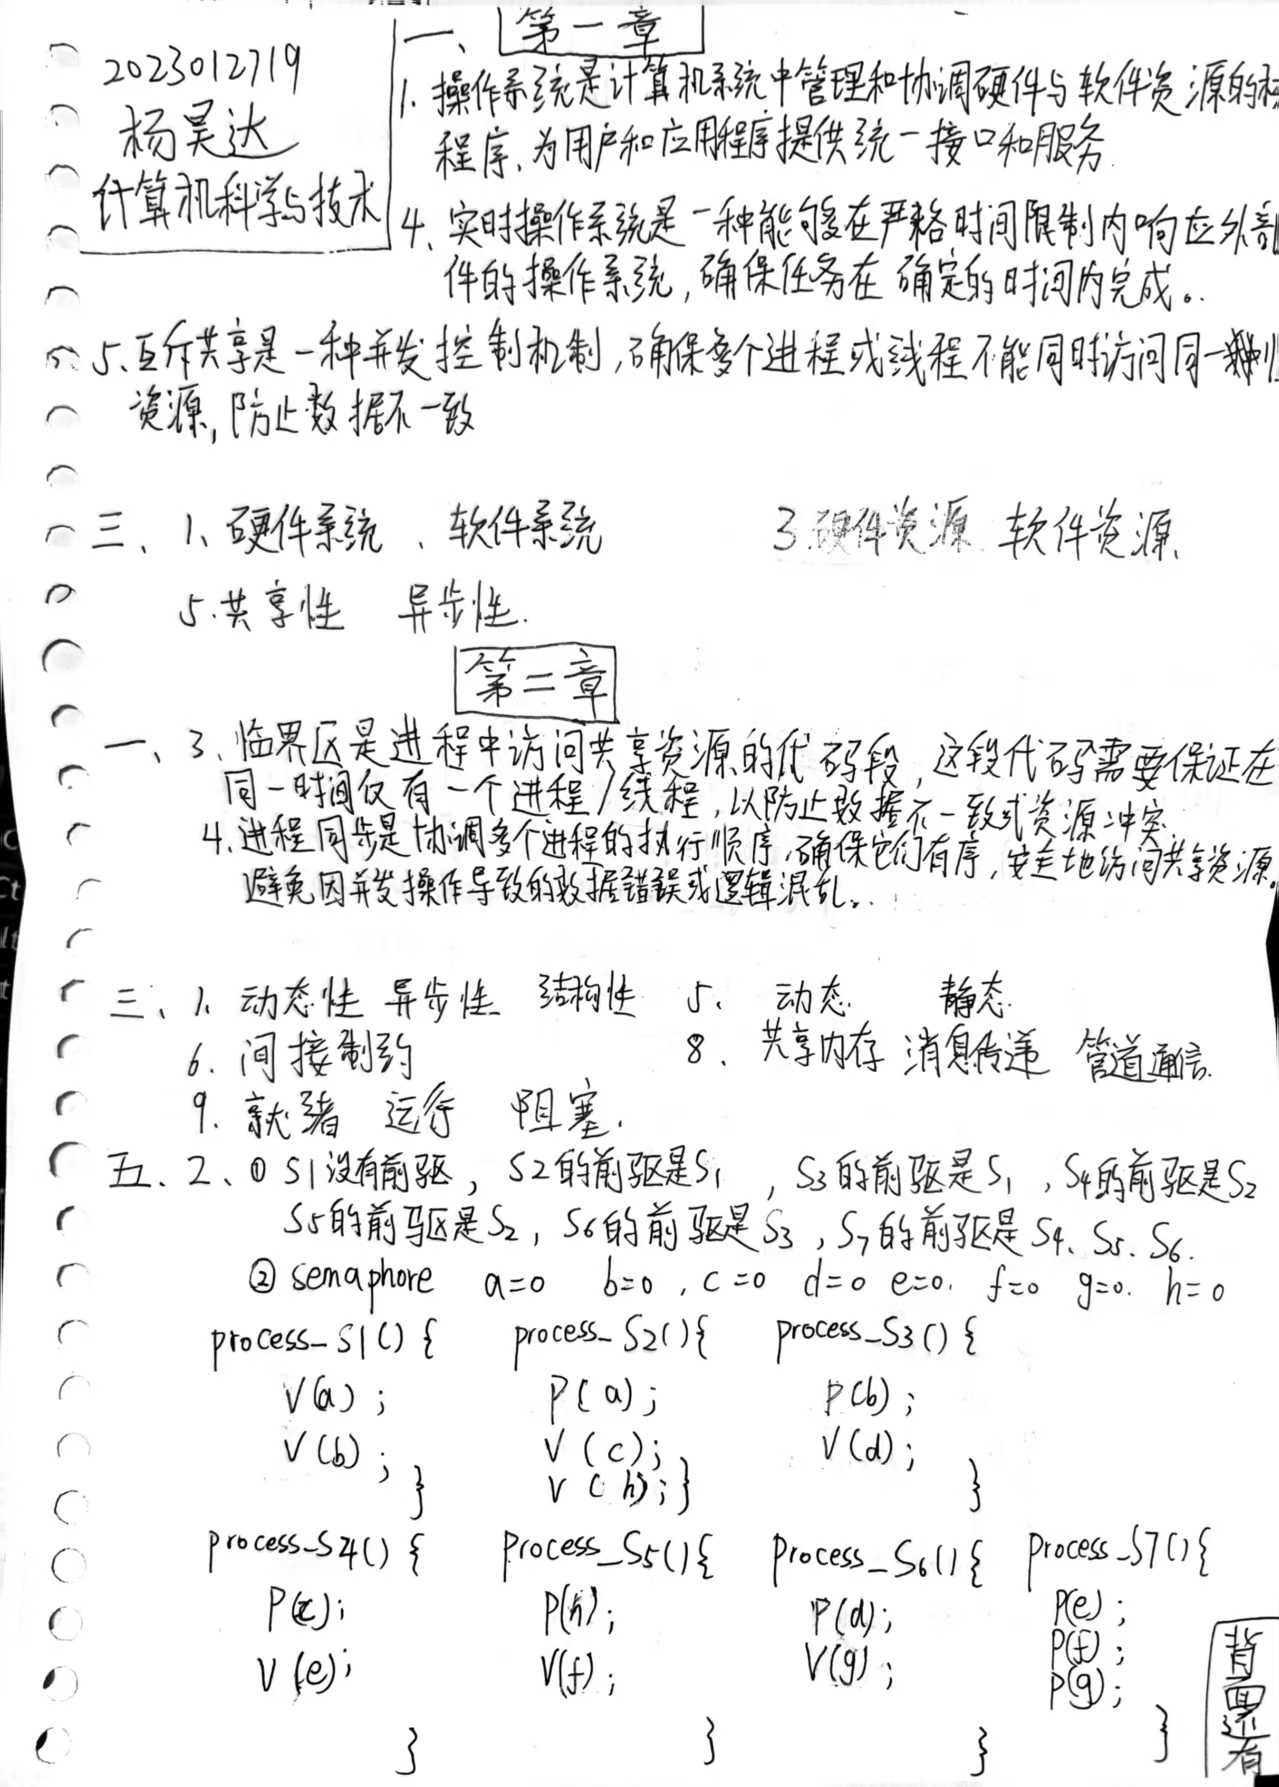 2023012719
杨昊达
计算机科学与技术
一、 第一章
1. 操作系统是计算机系统中管理和协调硬件与软件资源的核
程序,为用户和应用程序提供统一接口和服务.
4、实时操作系统是一种能够在严格时间限制内响应外部
件的操作系统,确保任务在确定的时间内完成。
5、互斥共享是一种并发控制机制,确保多个进程或线程不能同时访问同一
资源,防止数据不一致
三、1、硬件系统、软件系统 3.硬件资源 软件资源
5.共享性 异步性.
第二章
一、3、临界区是进程中访问共享资源的代码段,这段代码需要保证在
同一时间仅有一个进程/线程,以防止数据不一致或资源冲突.
4.进程同步是协调多个进程的执行顺序,确保它们有序,安全地访问共享资源,
避免因并发操作导致的数据错误或逻辑混乱。
三、1、动态性 异步性 结构性 5、动态 静态
6、间接制约 8、共享内存 消息传递 管道通信
9、就绪 运行 阻塞.
五、2、① S1没有前驱, S2的前驱是S1 , S3的前驱是S1 , S4的前驱是S2
S5的前驱是S2, S6的前驱是S3, S7的前驱是S4、S5、S6.
② semaphore a=0 b=0, c=0 d=0 e=0. f=0 g=0. h=0
process_S1(){ process_S2(){ process_S3(){
V(a); P(a); P(b);
V(b); } V(c); V(d); }
V(h);}
process_S4(){ process_S5(){ process_S6(){ process_S7(){
P(c); P(h); P(d); P(e);
V(e); V(f); V(g); P(f);
P(g);
} } } }
背面还有